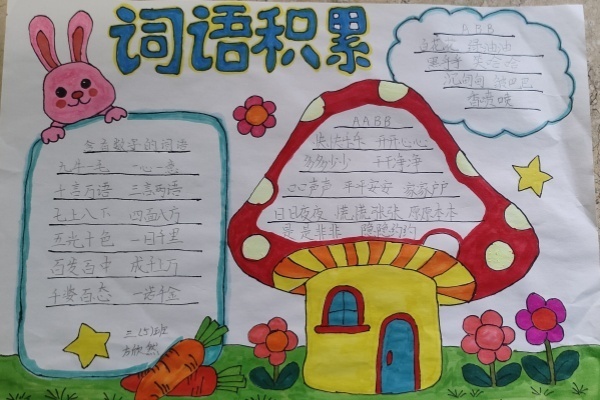 词语积累
含有数字的词语
九牛一毛 一心一意
十言万语 三言两语
七上八下 四面八方
五光十色 一日千里
百发百中 成千上万
千姿百态 一诺千金
三(5)班
AABB
快快乐乐 开开心心
多多少少 干干净净
口口声声 平平安安 家家户户
日日夜夜 慌慌张张 原原本本
是是非非
ABB
绿油油
笑哈哈